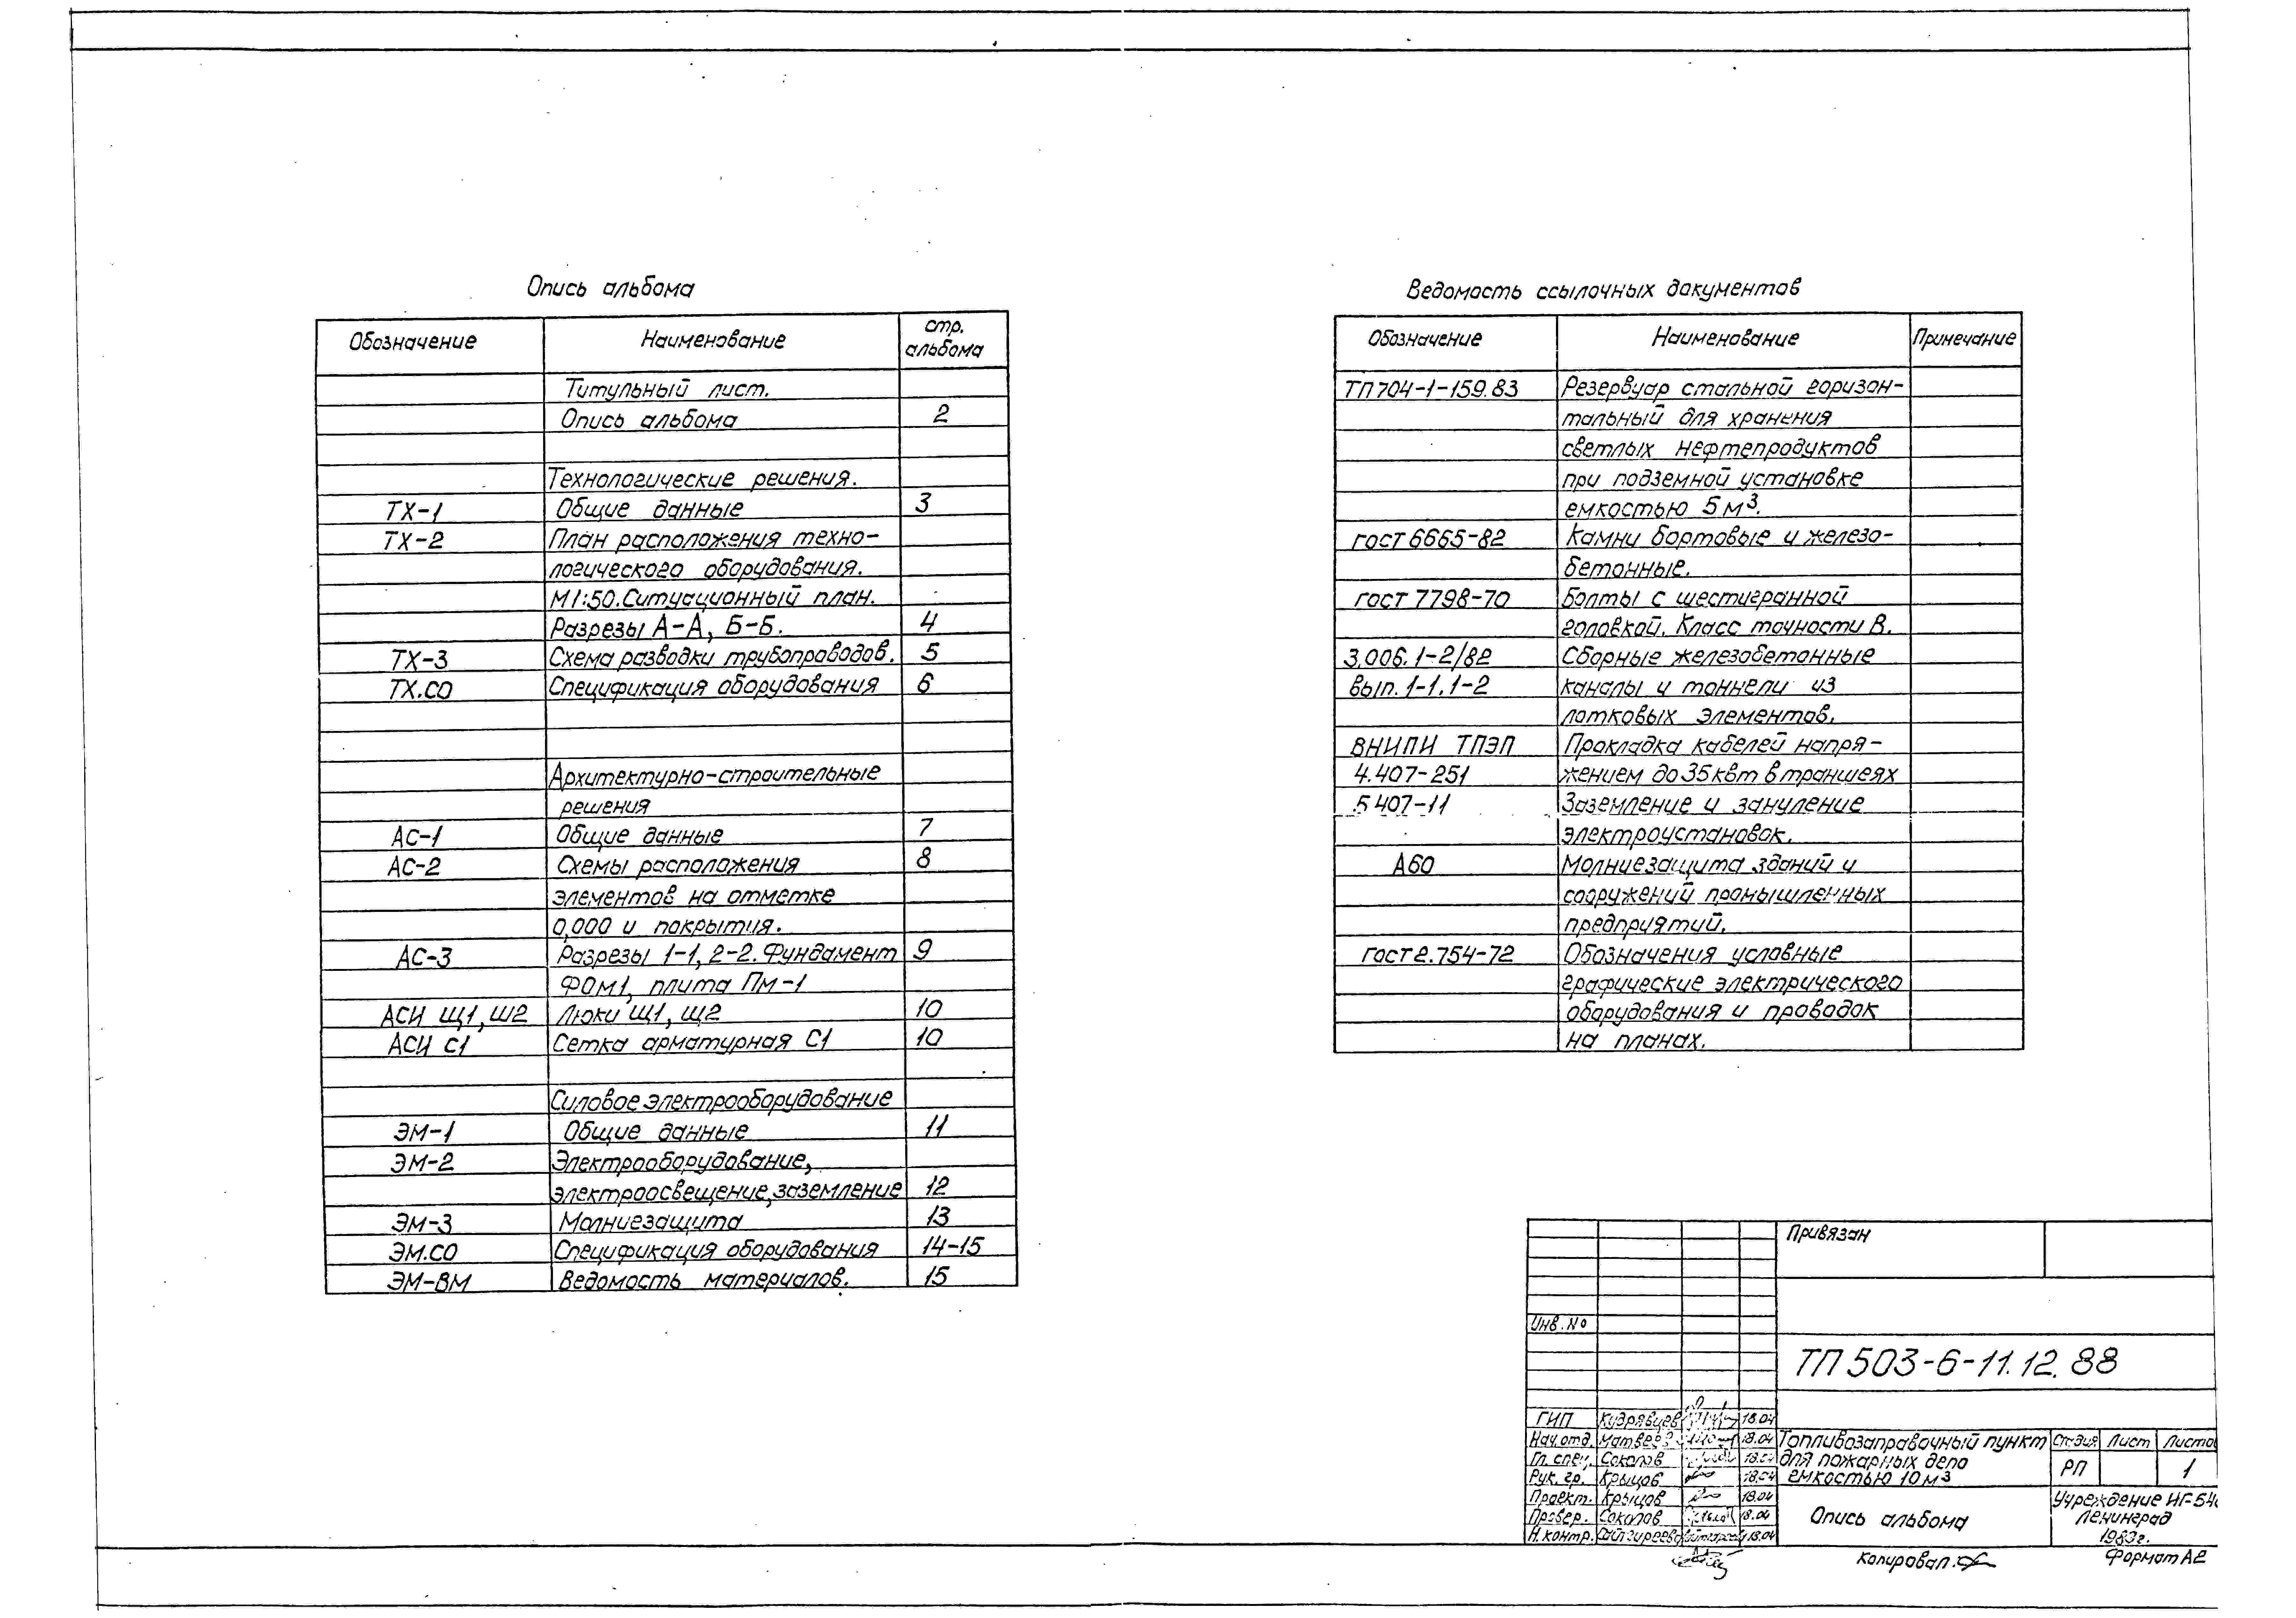 Опись альбома
Обозначение Наименование стр. альбома
Титульный лист.
Опись альбома 2
Технологические решения.
ТХ-1 Общие данные 3
ТХ-2 План расположения техно-
логического оборудования.
М1:50. Ситуационный план.
Разрезы А-А, Б-Б. 4
ТХ-3 Схема разводки трубопроводов. 5
ТХ.СО Спецификация оборудования 6
Архитектурно-строительные
решения
АС-1 Общие данные 7
АС-2 Схемы расположения 8
элементов на отметке
0,000 и покрытия.
АС-3 Разрезы 1-1, 2-2. Фундамент 9
ФОм1, плита Пм-1
АСИ Щ1, Щ2 Люки Щ1, Щ2 10
АСИ С1 Сетка арматурная С1 10
Силовое электрооборудование
ЭМ-1 Общие данные 11
ЭМ-2 Электрооборудование,
электроосвещение, заземление 12
ЭМ-3 Молниезащита 13
ЭМ.СО Спецификация оборудования 14-15
ЭМ-ВМ Ведомость материалов. 15
Ведомость ссылочных документов
Обозначение Наименование Примечание
ТП 704-1-159.83 Резервуар стальной горизон-
тальный для хранения
светлых нефтепродуктов
при подземной установке
емкостью 5 м³.
гост 6665-82 Камни бортовые и железо-
бетонные.
гост 7798-70 Болты с шестигранной
головкой. Класс точности В.
3.006.1-2/82 Сборные железобетонные
вып. 1-1, 1-2 каналы и тоннели из
лотковых элементов.
ВНИПИ ТПЭП Прокладка кабелей напря-
4.407-251 жением до 35 квт в траншеях
5 407-11 Заземление и зануление
электроустановок.
А60 Молниезащита зданий и
сооружений промышленных
предприятий.
гост 2.754-72 Обозначения условные
графические электрического
оборудования и проводок
на планах.
Привязан
Инв. №
ТП 503-6-11.12.88
ГИП Кудрявцев 18.04
Нач. отд. Матвеев 18.04
Гл. спец. Соколов 18.04
Рук. гр. Крыцов 18.04
Проект. Крыцов 18.04
Провер. Соколов 18.04
Н. контр. 18.04
Топливозаправочный пункт
для пожарных депо
емкостью 10 м³
Стадия Лист Листов
РП 1
Опись альбома
Учреждение
Ленинград
1983г.
Копировал. Формат А2